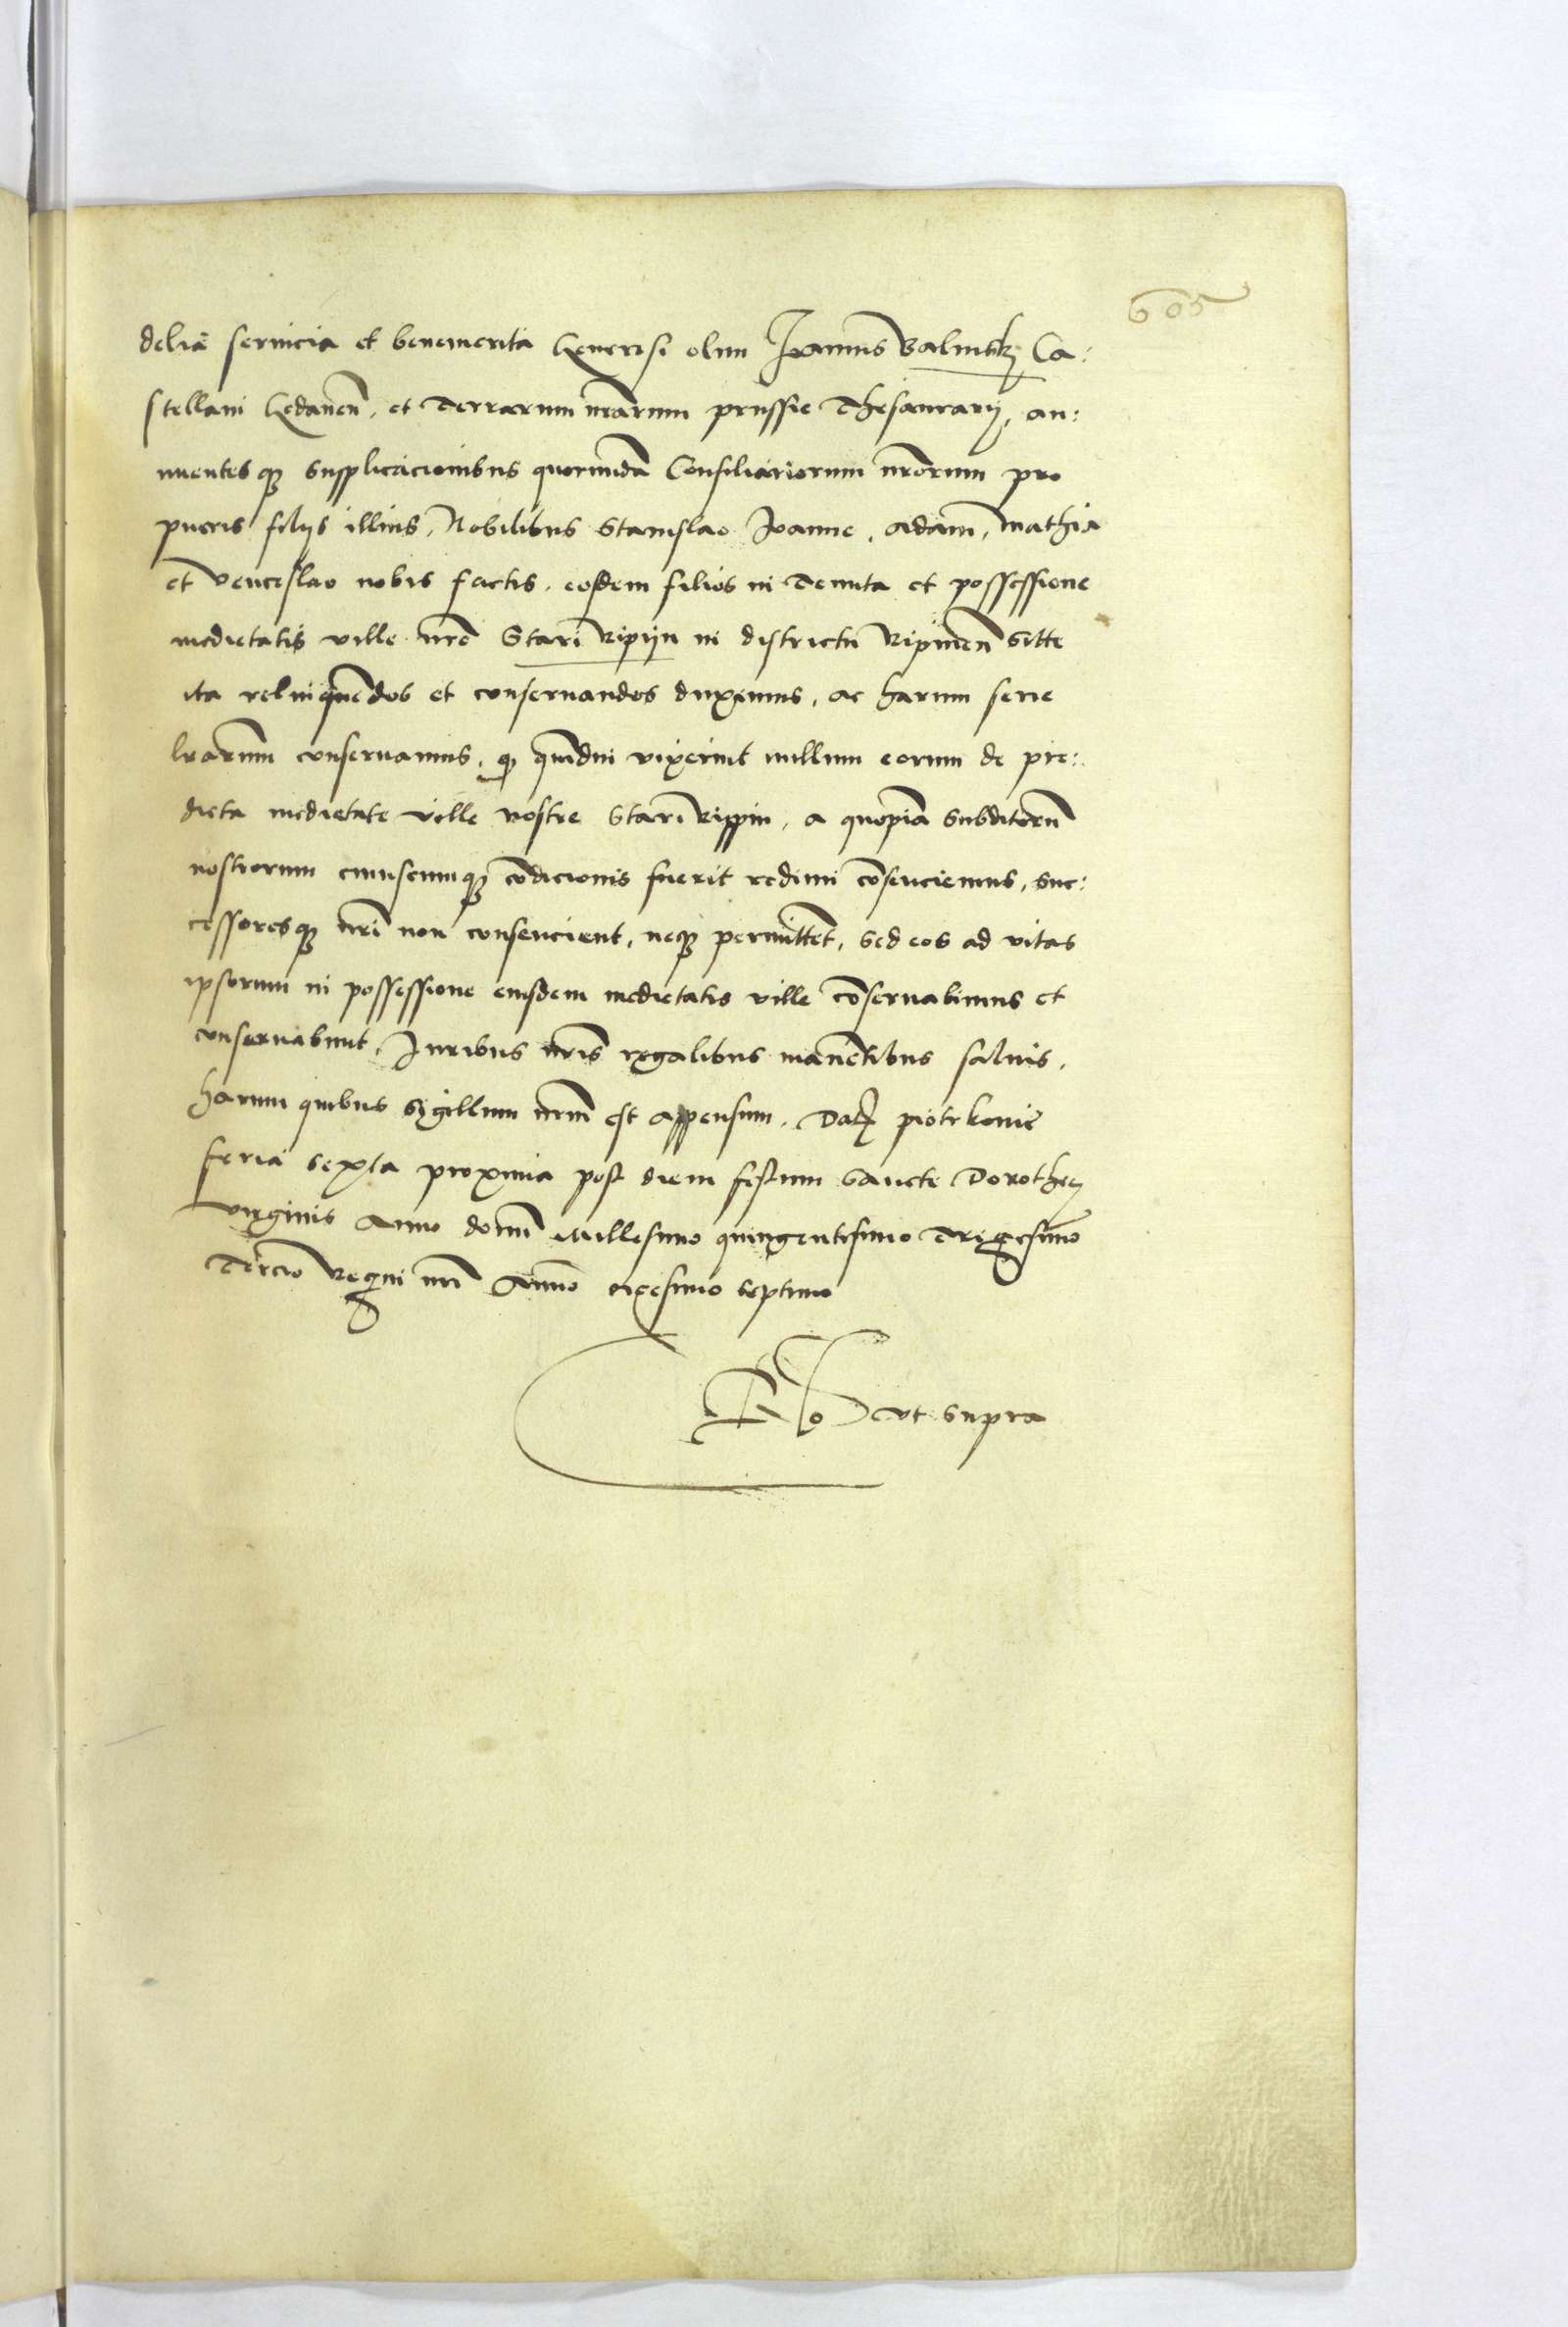 605
delia seruicia et benemerita Generosi olim Joannis Balinskj Ca:
stellani Gedaneñ. et Terrarum nrarum prussie Thesaurarij, an:
nuentesqȝ supplicacionibus quorundã Consiliariorum nrorum pro
pueris filijs illius, Nobilibus Stanislao Joanne, Adam, Mathia
et Venceslao nobis factis, eosdem filios in Tenuta et possessione
medietatis ville nrẽ Stari Ripijn in districtu Ripineñ sitte
ita relinquẽdos et conseruandos duximus, ac harum serie
lrarum conseruamus, qȝ quãdiu vixerint nullum eorum de pre:
dicta medietate ville nostre Stari Rippin, a quopiã subditorũ
nostrorum cuiuscumqȝ cõdicionis fuerit redimi cõsenciemus, suc:
cessoresqȝ nrĩ non consencient, neqȝ permittẽt, sed eos ad vitas
ipsorum in possessione eiusdem medietatis ville cõseruabimus et
conseruabunt, Juribus nrĩs regalibus manẽtibus saluis,
harum quibus Sigillum nrm̃ est appensum. Datȝ piotrkouie
feria sexta proxima post diem festum Sancte Dorothee
virginis Anno domĩ Millesimo quingentesimo Trigesimo
Tercio Regni nrĩ Anno vigesimo septimo
Rõ ut supra